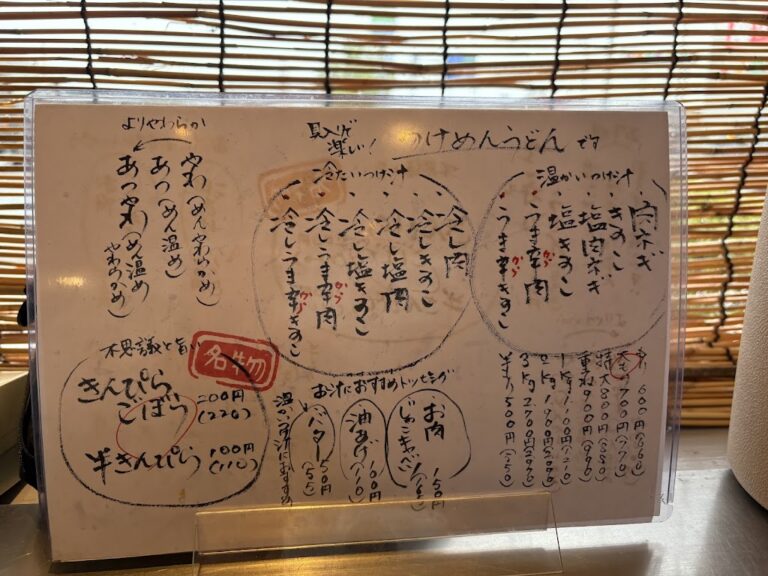 つけめんうどんです
具入りで
楽しい!
温かいつけ汁
肉ネギ
きのこ
塩肉ネギ
塩きのこ
うま辛肉
から
うま辛きのこ
冷たいつけ汁
冷し肉
冷しきのこ
冷し塩肉
冷し塩きのこ
冷しうま辛肉
から
冷しうま辛きのこ
から
よりやわらか
やわ(めんやわらかめ)
あつ(めん温め)
あつやわ(めん温め
やわらかめ)
不思議と旨い
名物
きんぴら
ごぼう
200円
(220)
半きんぴら
100円
(110)
お汁におすすめトッピング
お肉
じゃこキャベツ
150円
(165)
油あげ
100円
(110)
バター
50円
(55)
温かいお汁におすすめ
600円(660)
大もり 700円(770)
特大800円(880)
重ね900円(990)
1kg1100円(1210)
2kg1900円(2090)
3kg2700円(2970)
半分500円(550)